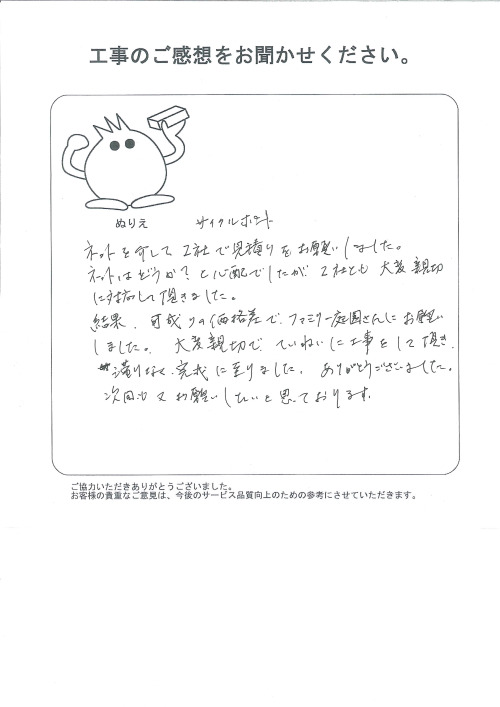 工事のご感想をお聞かせください。
ぬりえ サイクルポート
ネットを介して 2社で見積りをお願いしました。
ネットはどうか?と心配でしたが 2社とも 大変親切
に対応して頂きました。
結果、可成りの価格差で、ファミリー庭園さんにお願い
しました。 大変親切で、ていねいに工事をして頂き、
滞りなく完成に至りました。ありがとうございました。
次回も又お願いしたいと思っております。
ご協力いただきありがとうございました。
お客様の貴重なご意見は、今後のサービス品質向上のための参考にさせていただきます。